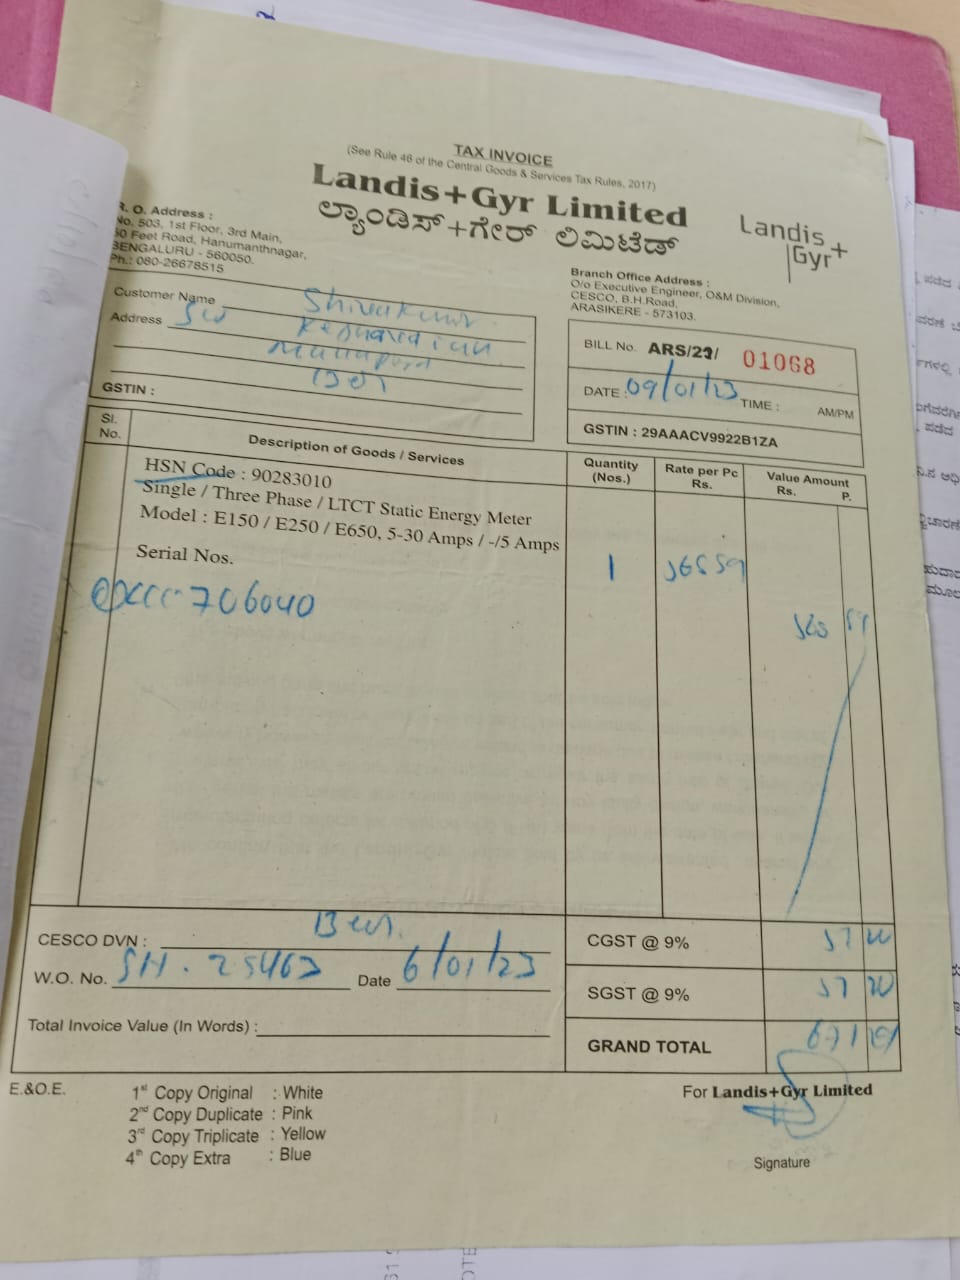 TAX INVOICE
(See Rule 46 of the Central Goods & Services Tax Rules, 2017)
Landis+Gyr Limited
ಲ್ಯಾಂಡಿಸ್+ಗೇರ್ ಲಿಮಿಟೆಡ್
Landis+Gyr
R. O. Address :
No. 503, 1st Floor, 3rd Main,
50 Feet Road, Hanumanthnagar,
BENGALURU - 560050.
Ph.: 080-26678515
Branch Office Address :
O/o Executive Engineer, O&M Division,
CESCO, B.H.Road,
ARASIKERE - 573103.
Customer Name Shivakumar
Address
GSTIN :
BILL No. ARS/22/ 01068
DATE : 09/01/23 TIME : AM/PM
GSTIN : 29AAACV9922B1ZA
Sl. No. Description of Goods / Services Quantity (Nos.) Rate per Pc Rs. Value Amount Rs. P.
HSN Code : 90283010
Single / Three Phase / LTCT Static Energy Meter
Model : E150 / E250 / E650, 5-30 Amps / -/5 Amps
Serial Nos. 1
706040
CESCO DVN :
W.O. No. 25463 Date 6/01/23
Total Invoice Value (In Words) :
CGST @ 9%
SGST @ 9%
GRAND TOTAL
E.&O.E.
1st Copy Original : White
2nd Copy Duplicate : Pink
3rd Copy Triplicate : Yellow
4th Copy Extra : Blue
For Landis+Gyr Limited
Signature